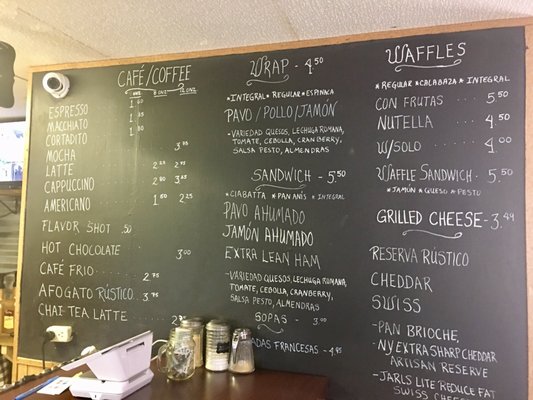 CAFÉ/COFFEE
ESPRESSO
MACCHIATO
CORTADITO
MOCHA
LATTE
CAPPUCCINO
AMERICANO
FLAVOR SHOT .50
HOT CHOCOLATE 3.00
CAFÉ FRIO 2.75
AFOGATO RÚSTICO 3.75
CHAI TEA LATTE
WRAP - 4.50
*INTEGRAL *REGULAR *ESPINACA
PAVO/POLLO/JAMÓN
-VARIEDAD QUESOS, LECHUGA ROMANA,
TOMATE, CEBOLLA, CRANBERRY,
SALSA PESTO, ALMENDRAS
SANDWICH - 5.50
*CIABATTA *PAN ANÍS *INTEGRAL
PAVO AHUMADO
JAMÓN AHUMADO
EXTRA LEAN HAM
-VARIEDAD QUESOS, LECHUGA ROMANA,
TOMATE, CEBOLLA, CRANBERRY,
SALSA PESTO, ALMENDRAS
SOPAS - 3.00
FRANCESAS - 4.95
WAFFLES
*REGULAR *CALABAZA *INTEGRAL
CON FRUTAS 5.50
NUTELLA 4.50
W/SOLO 4.00
WAFFLE SANDWICH 5.50
*JAMÓN *QUESO *PESTO
GRILLED CHEESE - 3.49
RESERVA RÚSTICO
CHEDDAR
SWISS
-PAN BRIOCHE,
-NY EXTRA SHARP CHEDDAR
ARTISAN RESERVE
-JARLS LITE REDUCE FAT
SWISS CHEESE